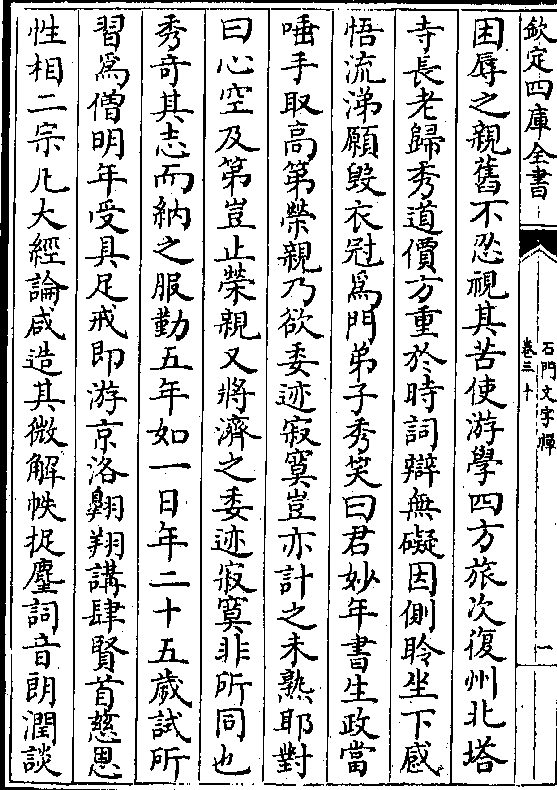 欽定四庫全書
石門文字禪
卷三十
一
困辱之親舊不忍視其苦使游學四方旅次復州北塔
寺長老歸秀道價方重於時詞辯無礙因側聆坐下感
悟流涕願毀衣冠為門弟子秀笑曰君妙年書生政當
唾手取高第榮親乃欲委迹寂寞豈亦計之未熟耶對
曰心空及第豈止榮親又將濟之委迹寂寞非所同也
秀奇其志而納之服勤五年如一日年二十五歲試所
習爲僧明年受具足戒即游京洛翺翔講肆賢首慈恩
性相二宗凡大經論咸造其微解帙捉麈詞音朗潤談